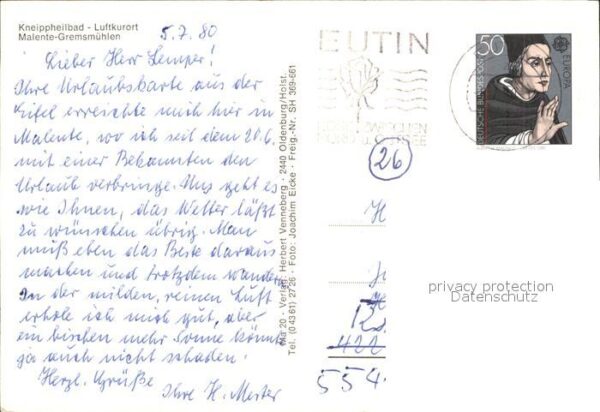 Kneippheilbad - Luftkurort
Malente-Gremsmühlen
5.7.80
Lieber Herr Semper!
Ihre Urlaubskarte aus der
Eifel erreichte mich hier in
Malente, wo ich seit dem 20.6.
mit einer Bekannten den
Urlaub verbringe. Uns geht es
wie Ihnen, das Wetter läßt
zu wünschen übrig. Man
muß eben das Beste daraus
machen und trotzdem wandern
In der milden, reinen Luft
erhole ich mich gut, aber
ein bischen mehr Sonne könnte
ja auch nicht schaden!
Herzl. Grüße
Ihre H. Mester
Ma 20 · Verlag: Herbert Venneberg · 2440 Oldenburg/Holst.
Tel. (04361) 2726 · Foto: Joachim Eicke · Freig.-Nr. SH 369-661
EUTIN
50
DEUTSCHE BUNDESPOST
EUROPA
26
H
422
554
privacy protection
Datenschutz